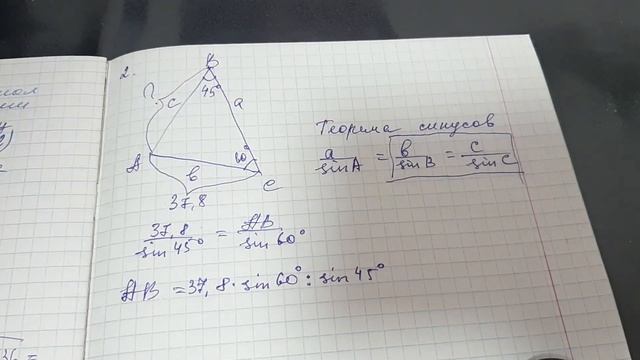 2.
B
?
c
45°
a
A
60°
b
C
37,8
Теорема синусов
a/sinA = b/sinB = c/sinC
37,8/sin45° = AB/sin60°
AB = 37,8 · sin60° : sin45°